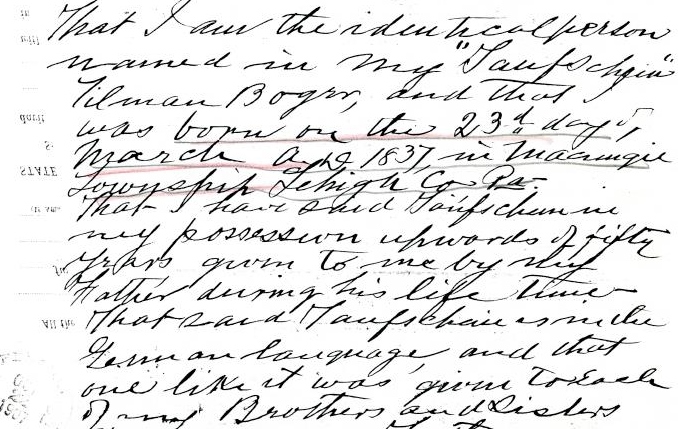 That I am the identical person
named in my "Taufschein"
Tilman Boger, and that I
was born on the 23d day of
March A.D. 1837, in Macungie
Township Lehigh Co Pa.
That I have said Taufschein in
my possession upwards of fifty
years given to me by my
Father during his life time
That said Taufschein is in the
German language, and that
one like it was given to Each
of my Brothers and Sisters
STATE
All the